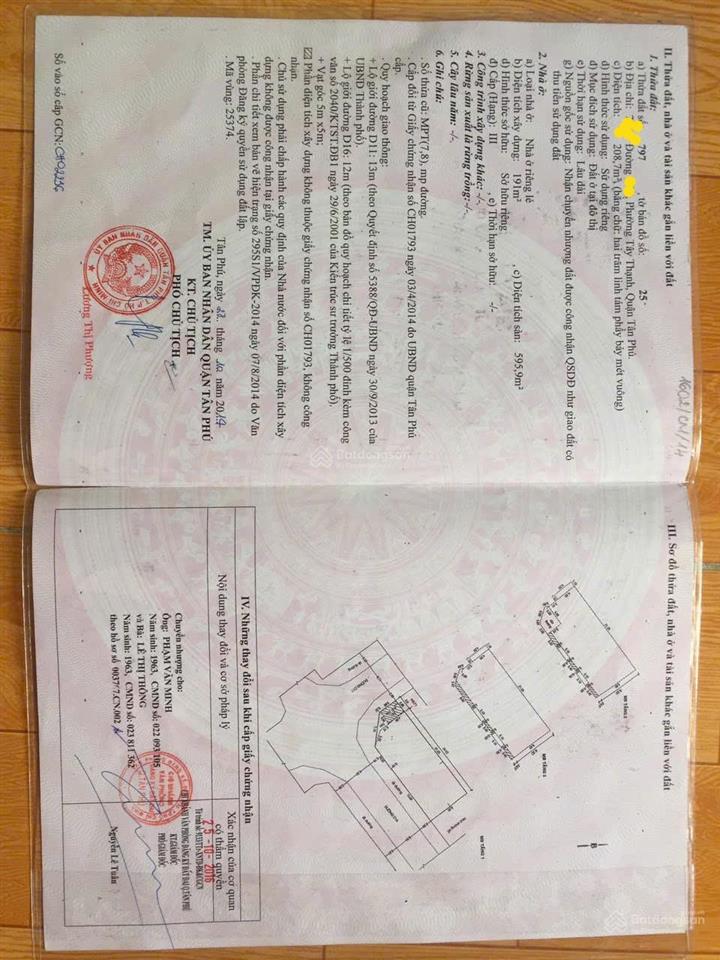 II. Thửa đất, nhà ở và tài sản khác gắn liền với đất
1. Thửa đất:
a) Thửa đất số: 797 tờ bản đồ số: 25-
b) Địa chỉ: Đường , Phường Tây Thạnh, Quận Tân Phú
c) Diện tích: 208,7m², (bằng chữ: hai trăm linh tám phẩy bảy mét vuông)
d) Hình thức sử dụng: Sử dụng riêng
đ) Mục đích sử dụng: Đất ở tại đô thị
e) Thời hạn sử dụng: Lâu dài
g) Nguồn gốc sử dụng: Nhận chuyển nhượng đất được công nhận QSDĐ như giao đất có
thu tiền sử dụng đất
2. Nhà ở:
a) Loại nhà ở: Nhà ở riêng lẻ
b) Diện tích xây dựng: 191m² , c) Diện tích sàn: 595,9m²
d) Hình thức sở hữu: Sở hữu riêng
đ) Cấp (Hạng): III , e) Thời hạn sở hữu: -/-
3. Công trình xây dựng khác: -/-
4. Rừng sản xuất là rừng trồng: -/-
5. Cây lâu năm: -/-
6. Ghi chú:
. Số thửa cũ: MPT(7,8), mp đường.
. Cấp đổi từ Giấy chứng nhận số CH01793 ngày 03/4/2014 do UBND quận Tân Phú
cấp.
. Quy hoạch giao thông:
+ Lộ giới đường D11: 13m (theo Quyết định số 5388/QĐ-UBND ngày 30/9/2013 của
UBND Thành phố).
+ Lộ giới đường D16: 12m (theo bản đồ quy hoạch chi tiết tỷ lệ 1/500 đính kèm công
văn số 2040/KTST.ĐB1 ngày 29/6/2001 của Kiến trúc sư trưởng Thành phố).
+ Vạt góc 5m x5m;
Phần diện tích xây dựng không thuộc giấy chứng nhận số CH01793, không công
nhận.
. Chủ sử dụng phải chấp hành các quy định của Nhà nước đối với phần diện tích xây
dựng không được công nhận tại giấy chứng nhận.
. Phần chi tiết xem bản vẽ hiện trạng số 29551/VPĐK-2014 ngày 07/8/2014 do Văn
phòng Đăng ký quyền sử dụng đất lập.
. Mã vùng: 25374.
Tân Phú, ngày 22 tháng 10 năm 2014
TM. ỦY BAN NHÂN DÂN QUẬN TÂN PHÚ
KT. CHỦ TỊCH
PHÓ CHỦ TỊCH
Số vào sổ cấp GCN: CH02256
1602/04/14
III. Sơ đồ thửa đất, nhà ở và tài sản khác gắn liền với đất
B
IV. Những thay đổi sau khi cấp giấy chứng nhận
Nội dung thay đổi và cơ sở pháp lý
Xác nhận của cơ quan
có thẩm quyền
Chuyển nhượng cho:
Ông: PHẠM VĂN MINH
Năm sinh: 1963, CMND số: 022 093 105
và Bà: LÊ THỊ THÔNG
Năm sinh: 1963, CMND số: 023 811 362
theo hồ sơ số 0037/7.CN.002
25-10-2016
KT.GIÁM ĐỐC
PHÓ GIÁM ĐỐC
Nguyễn Lê Tuấn
Batdongsan
Batdongsan